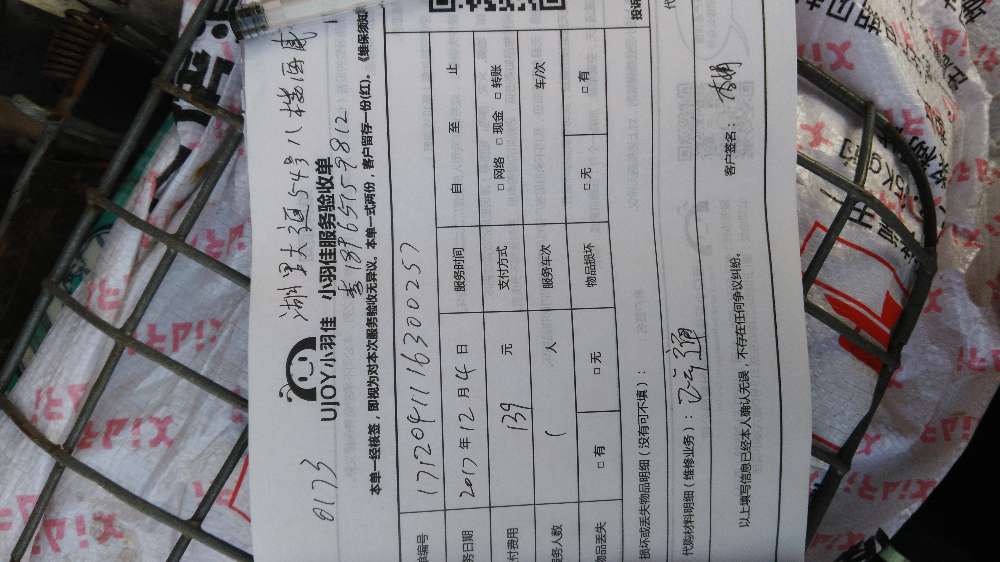 0173
湖里大道54号八楼海康
UJOY小羽佳 小羽佳服务验收单
李 18965159812
本单一经核签，即视为对本次服务验收无异议。本单一式两份，客户留存一份(红)。《维保须知
单编号 171204111630025)
务日期 2017年12月4日 服务时间 自 至 止
付费用 139 元 支付方式 □ 网络 □ 现金 □ 转账
务人数 1 人 服务车次 车/次
物品丢失 □ 有 □ 无 物品损坏 □ 无 □ 有
损坏或丢失物品明细（没有可不填）：
代购材料明细（维修业务）：
以上填写信息已经本人确认无误，不存在任何争议纠纷。 客户签名：
投诉
代